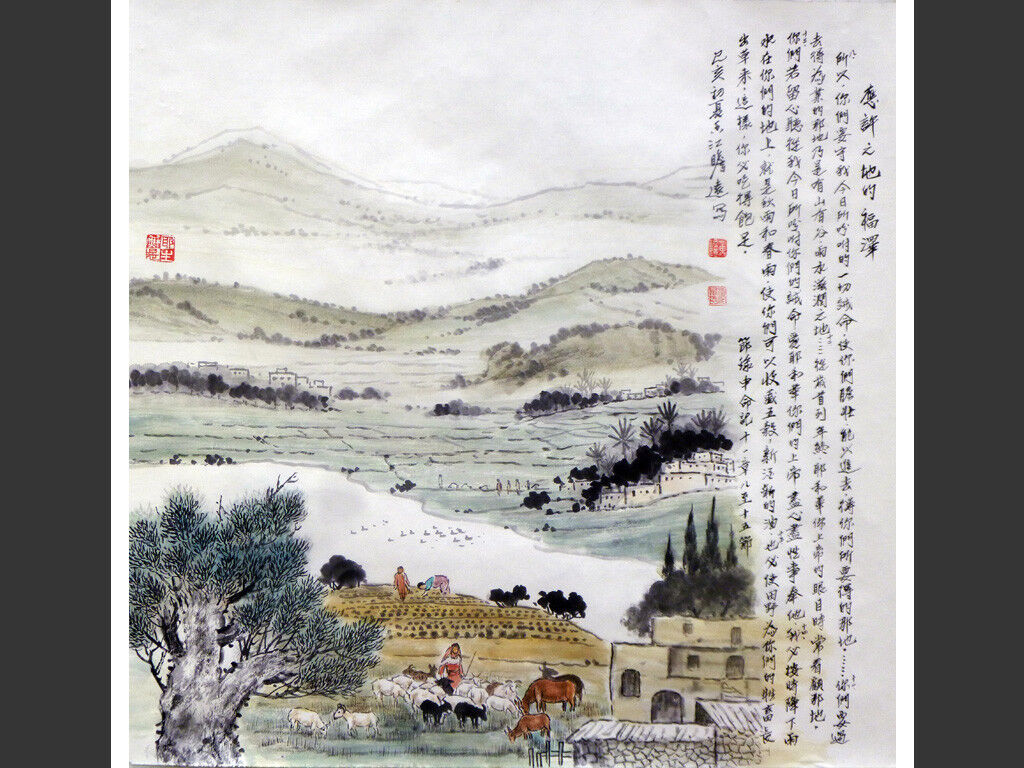 應許之地的福澤
所以,你們要守我今日所吩咐的一切誡命,使你們膽壯,能以進去,得你們所要得的那地。……你們要過
去得為業的那地乃是有山有谷、雨水滋潤之地……從歲首到年終,耶和華你上帝的眼目時常看顧那地。
你們若留心聽從我今日所吩咐你們的誡命,愛耶和華你們的上帝,盡心盡性事奉他,我必按時降下雨
水在你們的地上,就是秋雨和春雨,使你們可以收藏五穀,新酒新的油,也必使田野為你們的牲畜長
出草來,這樣,你必吃得飽足。 節錄申命記十一章八至十五節
己亥初夏 江瞻遠写